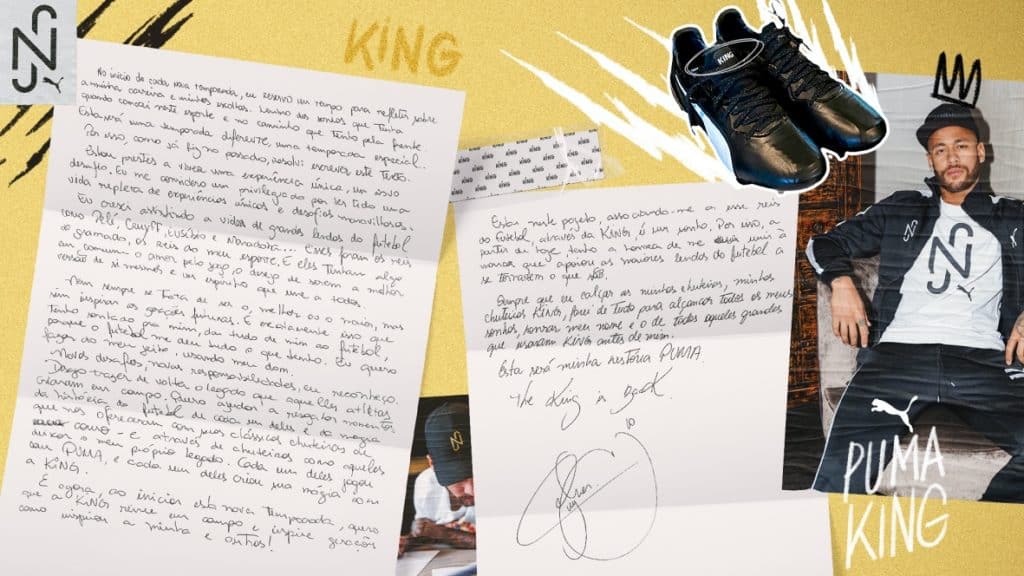 KING
No início de cada nova temporada, eu reservo um tempo para refletir sobre
a minha carreira e minhas escolhas. Lembro dos sonhos que tinha
quando comecei neste esporte e no caminho que tenho pela frente
Esta será uma temporada diferente, uma temporada especial.
Por isso, como já fiz no passado, resolvi escrever este texto.
Estou prestes a viver uma experiência única, um novo
desafio. Eu me considero um privilegiado por ter tido uma
vida repleta de experiências únicas e desafios maravilhosos.
Eu cresci assistindo a vídeos de grandes lendas do futebol
como Pelé, Cruyff, Eusébio e Maradona... Esses foram os reis
do gramado, os reis do meu esporte. E eles tinham algo
em comum: o amor pelo jogo, o desejo de serem a melhor
versão de si mesmos e um espírito que une a todos.
Nem sempre se trata de ser o melhor ou o maior, mas
sim inspirar as gerações futuras. E exatamente isso que
tenho sonhado pra mim, dar tudo de mim ao futebol,
porque o futebol me deu tudo o que tenho. Eu quero
fazer do meu jeito, usando meu dom.
Novos desafios, novas responsabilidades, eu reconheço.
Desejo trazer de volta o legado que aqueles atletas
criaram em campo. Quero ajudar a resgatar momentos
da história do futebol de cada um deles e da magia
que nos ofereceram com suas clássicas chuteiras de
couro - e através de chuteiras como aquelas
deixar o meu próprio legado. Cada um deles jogou
com PUMA, e cada um deles criou sua mágica com
a KING.
E agora, ao iniciar esta nova temporada, quero
que a KING reine em campo e inspire gerações
como inspirou a minha e outras!
Estar neste projeto, associando-me a esse reis
do futebol, através da KING, é um sonho. Por isso, a
partir de hoje, tenho a honra de me unir à
marca que apoiou as maiores lendas do futebol a
se tornarem o que são.
Sempre que eu calçar as minhas chuteiras, minhas
chuteiras KING, farei de tudo para alcançar todos os meus
sonhos honrar meu nome e o de todos aqueles grandes
que usaram KING antes de mim.
Esta será minha história PUMA.
The King is Back.
10
KING
PUMA
KING